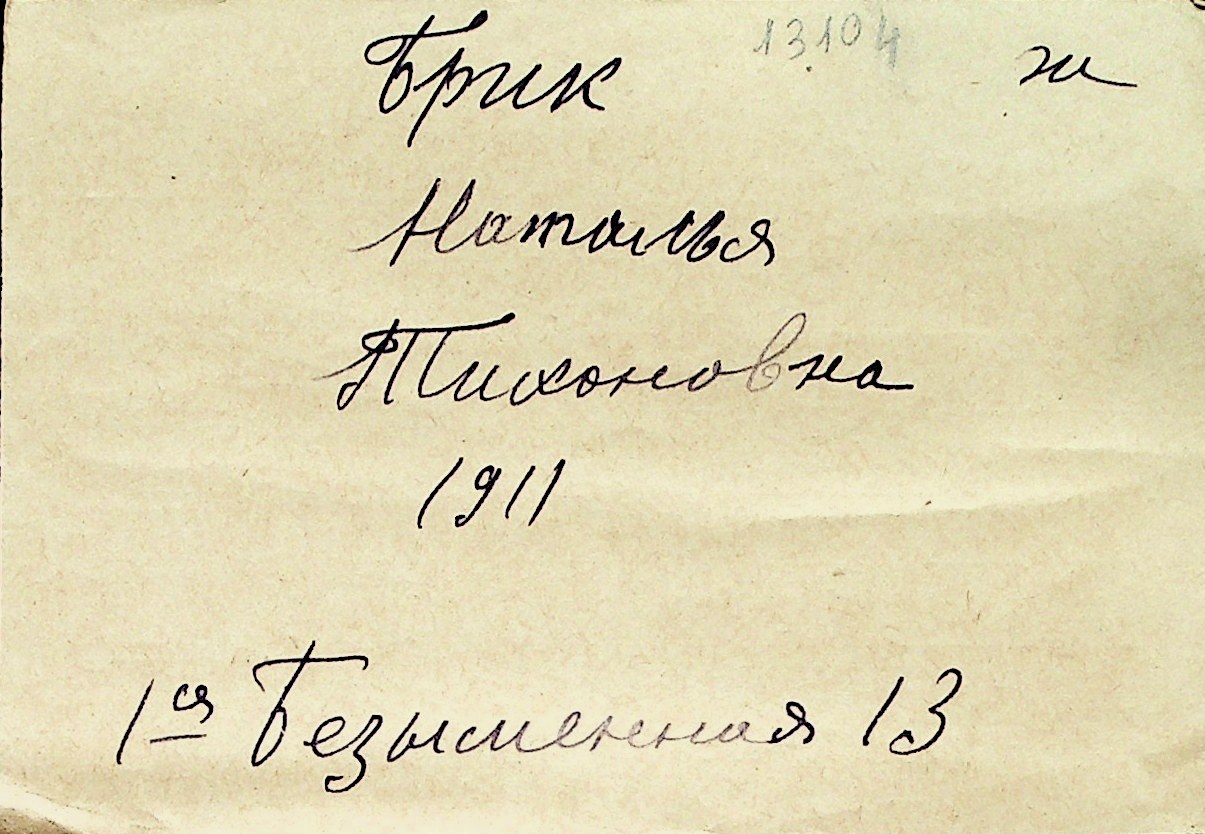 Брик 13104 ж
Наталья
Тихоновна
1911
1ая Безыменная 13